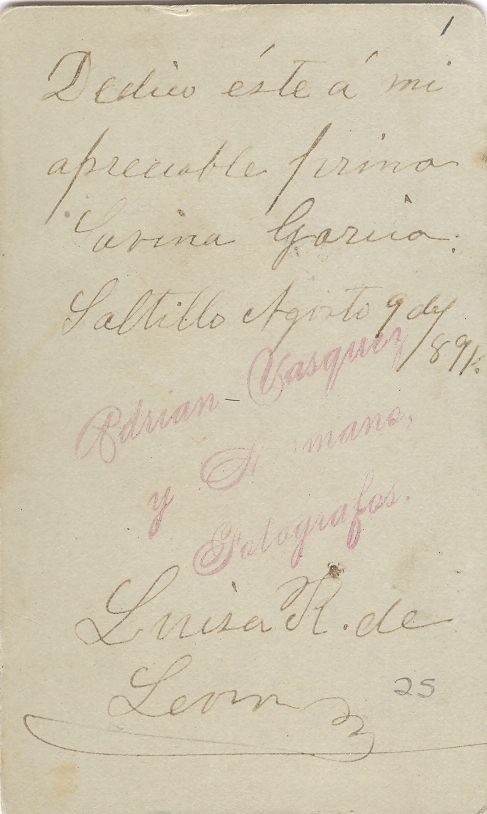 1
Dedico éste á mi
apreciable prima
Savina Garcia.
Saltillo Agosto 9 de
/891.
Adrian Vasquez
y Hermano,
Fotografos.
Luisa R. de
Leon
25